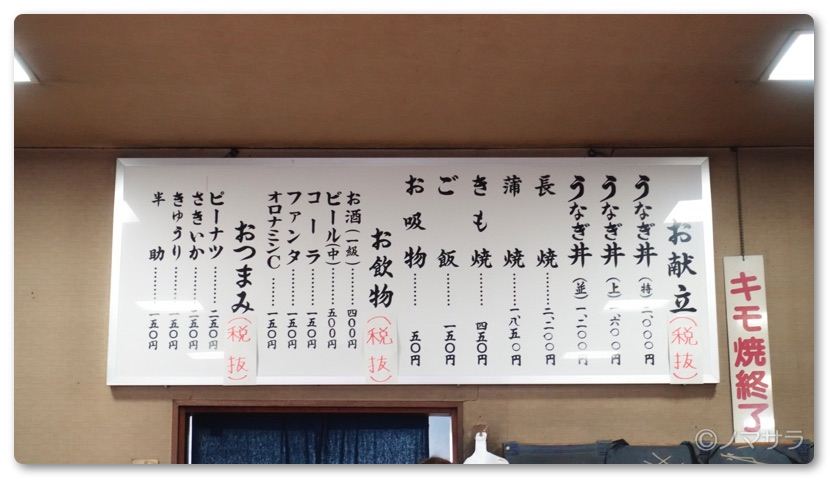 お献立(税抜)
うなぎ丼(特)二、〇〇〇円
うなぎ丼(上)一、六〇〇円
うなぎ丼(並)一、二〇〇円
長焼………二、二〇〇円
蒲焼……一、八五〇円
きも焼………四五〇円
ご飯………一五〇円
お吸物………五〇円
お飲物(税抜)
お酒(一級)………四〇〇円
ビール(中)………五〇〇円
コーラ………一五〇円
ファンタ………一五〇円
オロナミンC………一五〇円
おつまみ(税抜)
ピーナツ………二五〇円
さきいか………二五〇円
きゅうり………一五〇円
半助………一五〇円
キモ焼終了
©ノマサラ